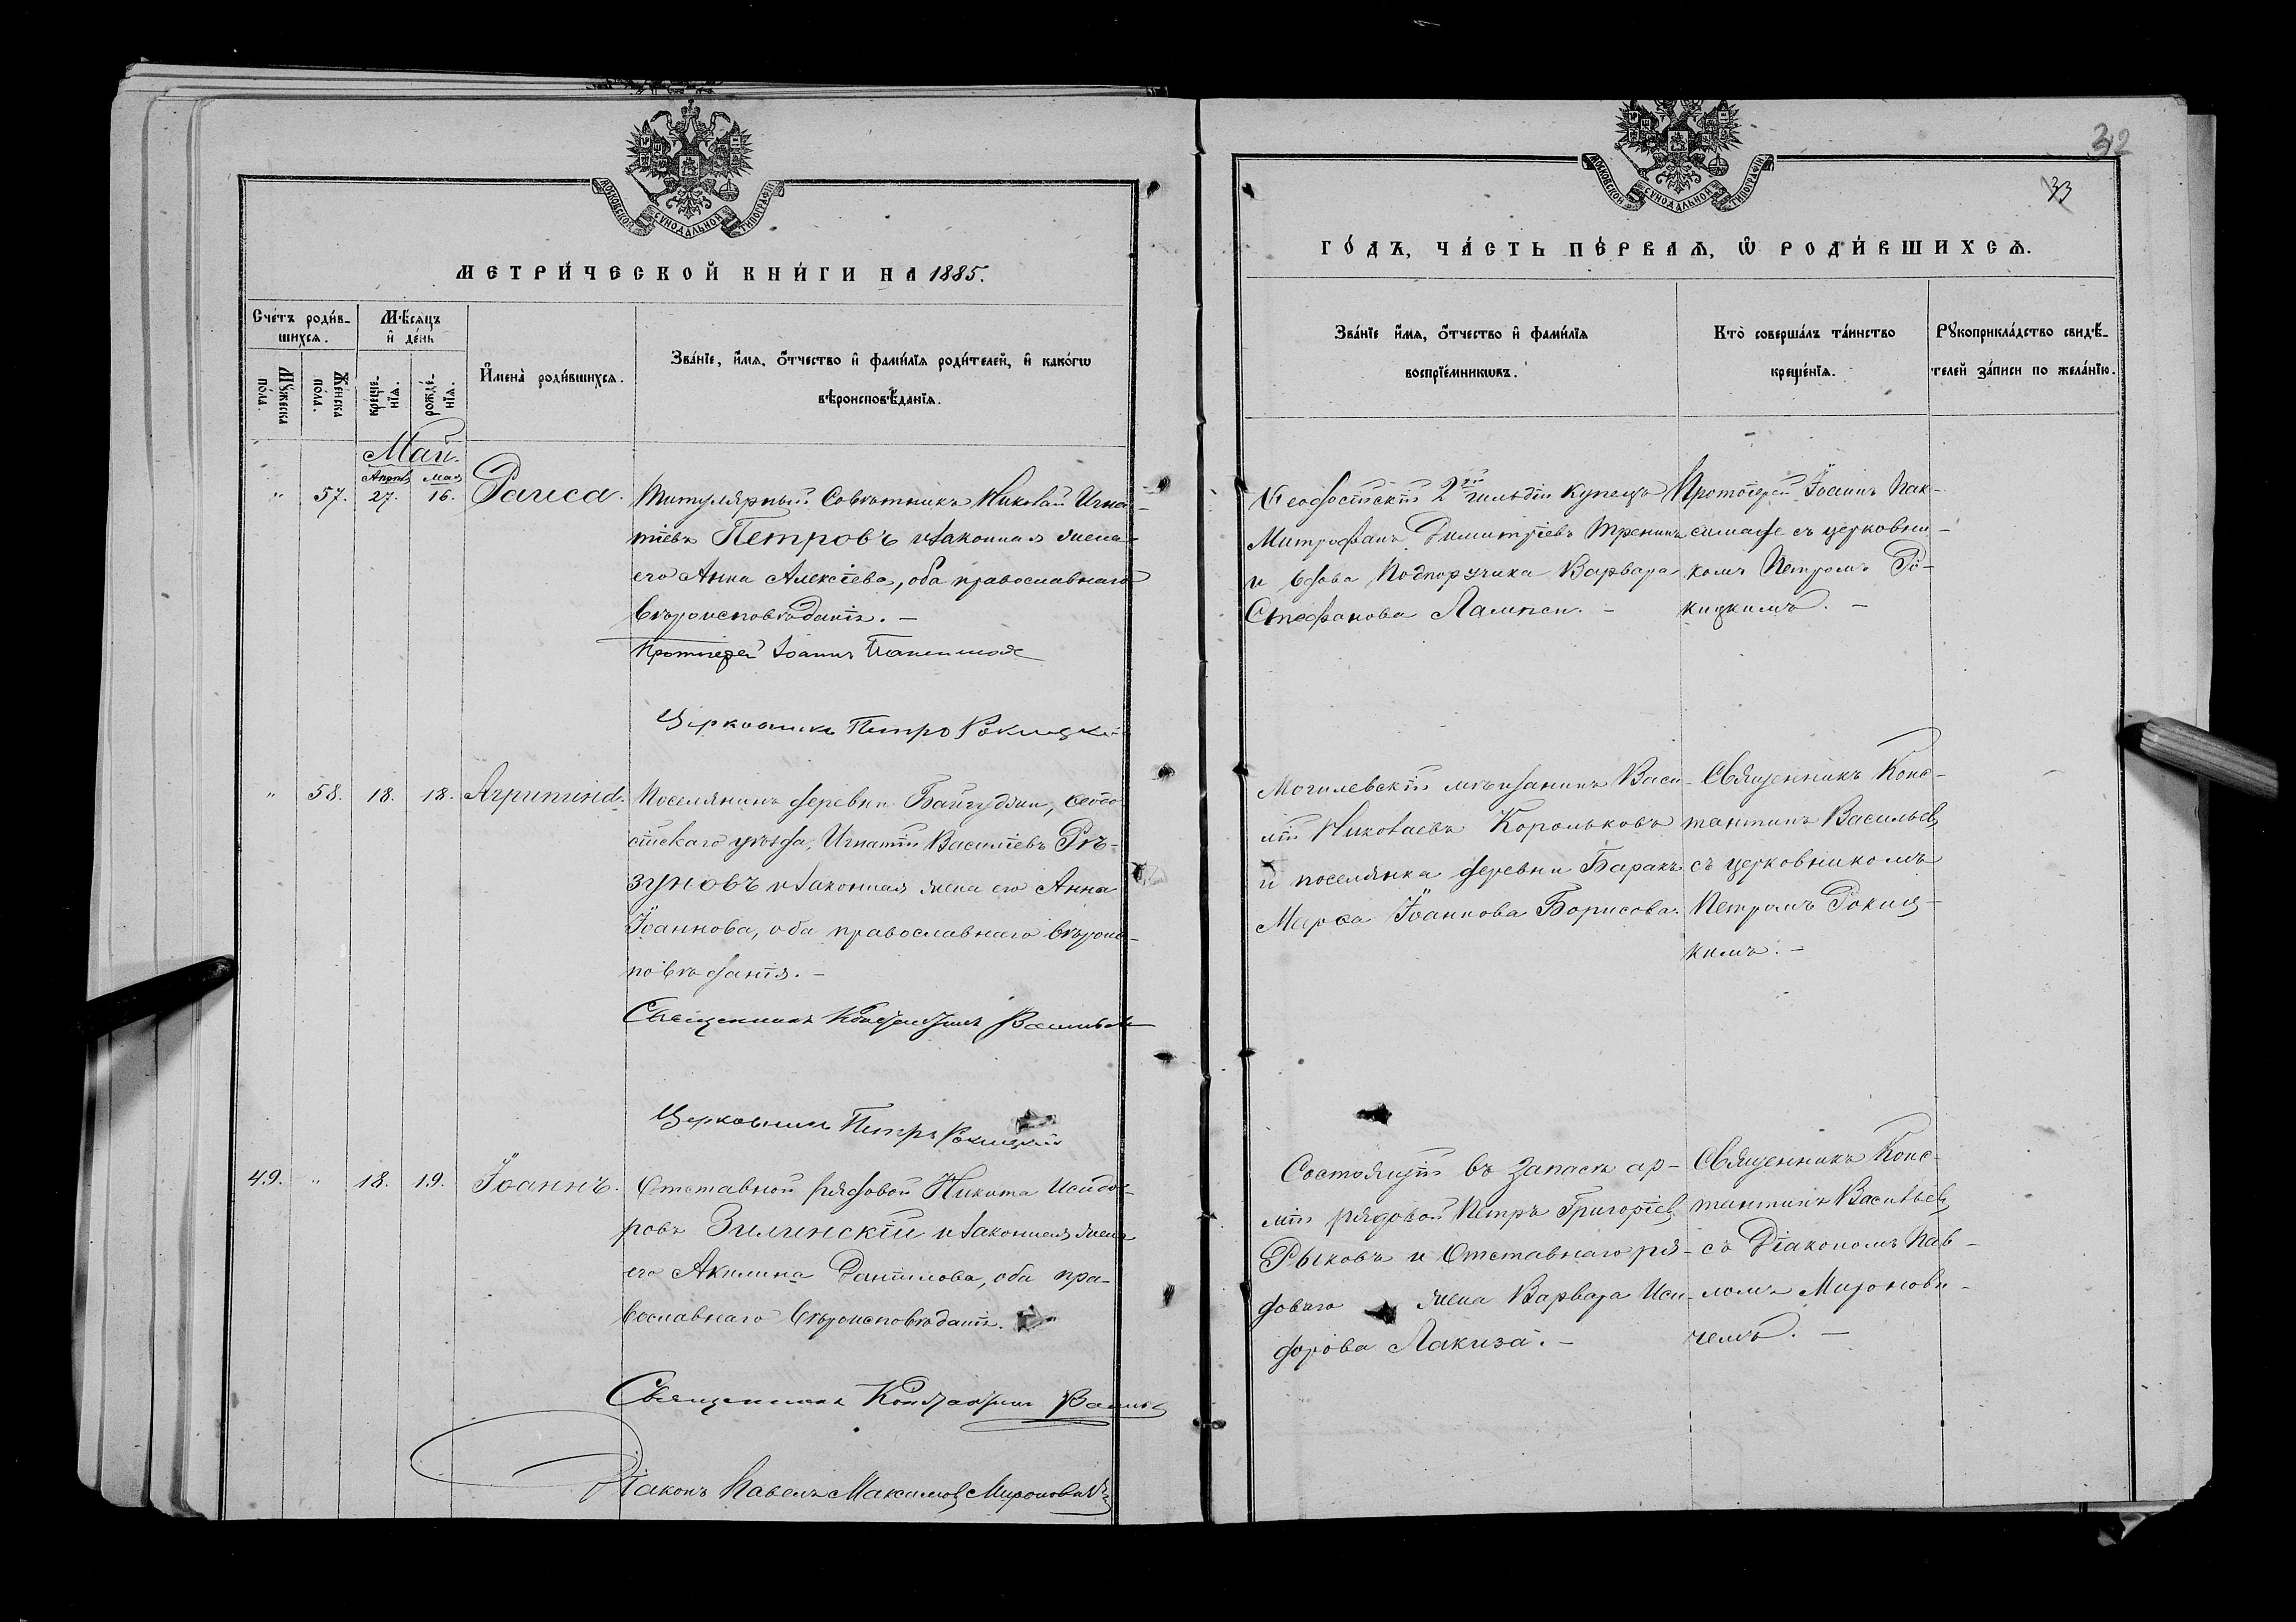 32
33
МОСКОВСКОЙ СѴНОДАЛЬНОЙ ТИПОГРАФІИ
МЕТРИ́ЧЕСКОЙ КНИ́ГИ НА 1885.
Сче́тъ роди́в-
шихсѧ.
Мꙋжеска
по́ла.
Же́нска
по́ла.
Мѣ́сѧцъ
и҆ де́нь
креще-
нїѧ.
рожде́-
нїѧ.
И҆мена̀ роди́вшихсѧ.
Зва́нїе, и҆́мѧ, ѻ҆́тчество и҆ фами́лїѧ роди́телей, и҆ како́гѡ
вѣроисповѣ́данїѧ.
Май.
Апрѣл Мая
" 57. 27. 16. Раиса.
Титулярный Совѣтникъ Николай Игна-
тіевъ Петровъ и законная жена
его Анна Алексіева, оба православнаго
вѣроисповѣданія. –
Протоіерей Іоаннъ
Церковникъ Петръ Рокицкій
" 58. 18. 18. Агрипина.
Поселянинъ деревни Байгуджи, Ѳеодо-
сійскаго уѣзда, Игнатій Василіевъ Рѣ-
зуновъ и законная жена его Анна
Іоаннова, оба православнаго вѣроис-
повѣданія. –
Священникъ Константинъ Васильевъ
Церковникъ Петръ Рокицкій
49. " 18. 19. Іоаннъ.
Отставной рядовой Никита Исидо-
ровъ Зилинскій и законная жена
его Акилина Даніилова, оба пра-
вославнаго вѣроисповѣданія.
Священникъ Константинъ Васильевъ
Діаконъ Павелъ Максимовъ Мироновичъ
МОСКОВСКОЙ СѴНОДАЛЬНОЙ ТИПОГРАФІИ
ГО́ДЪ, ЧА́СТЬ ПЕ́РВАѦ, Ѡ҆ РОДИ́ВШИХСѦ.
Зва́нїе и҆́мѧ, ѻ҆́тчество и҆ фами́лїѧ
воспрїе́мникѡвъ.
Кто̀ соверша́лъ та́инство
креще́нїѧ.
Рꙋкоприкла́дство свидѣ́-
телей за́писи по жела́нїю.
Ѳеодосійскій 2й гильдіи купецъ
Митрофанъ Димитріевъ Тренинъ
и вдова Подпоручика Варвара
Стефанова Лампси. –
Протоіерей Іоаннъ Пак-
симаде съ церковни-
комъ Петромъ Ро-
кицкимъ. –
Могилевскій мѣщанинъ Васи-
лій Николаевъ Корольковъ
и поселянка деревни Баракъ
Марѳа Іоаннова Борисова.
Священникъ Конс-
тантинъ Васильевъ
съ церковникомъ
Петромъ Рокиц-
кимъ. –
Состоящій въ запасѣ ар-
міи рядовой Петръ Григоріевъ
Рыковъ и Отставнаго ря-
доваго жена Варвара Иси-
дорова Лакиза. –
Священникъ Конс-
тантинъ Васильевъ
съ Діакономъ Пав-
ломъ Миронови-
чемъ. –